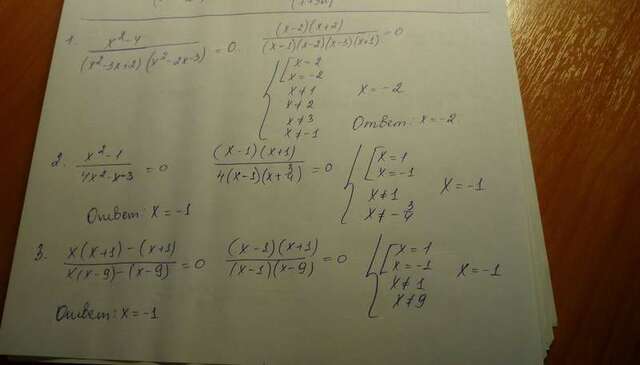 1. (x²-4)/((x²-3x+2)(x²-2x-3)) = 0. ((x-2)(x+2))/((x-1)(x-2)(x-3)(x+1)) = 0
x=2
x=-2
x≠1
x≠2 x=-2
x≠3
x≠-1 Ответ: x=-2.
2. (x²-1)/(4x²-x-3) = 0 ((x-1)(x+1))/(4(x-1)(x+3/4)) = 0
x=1
x=-1
x≠1 x=-1
x≠-3/4
Ответ: x=-1
3. (x(x+1)-(x+1))/(x(x-9)-(x-9)) = 0 ((x-1)(x+1))/((x-1)(x-9)) = 0
x=1
x=-1 x=-1
x≠1
x≠9
Ответ: x=-1